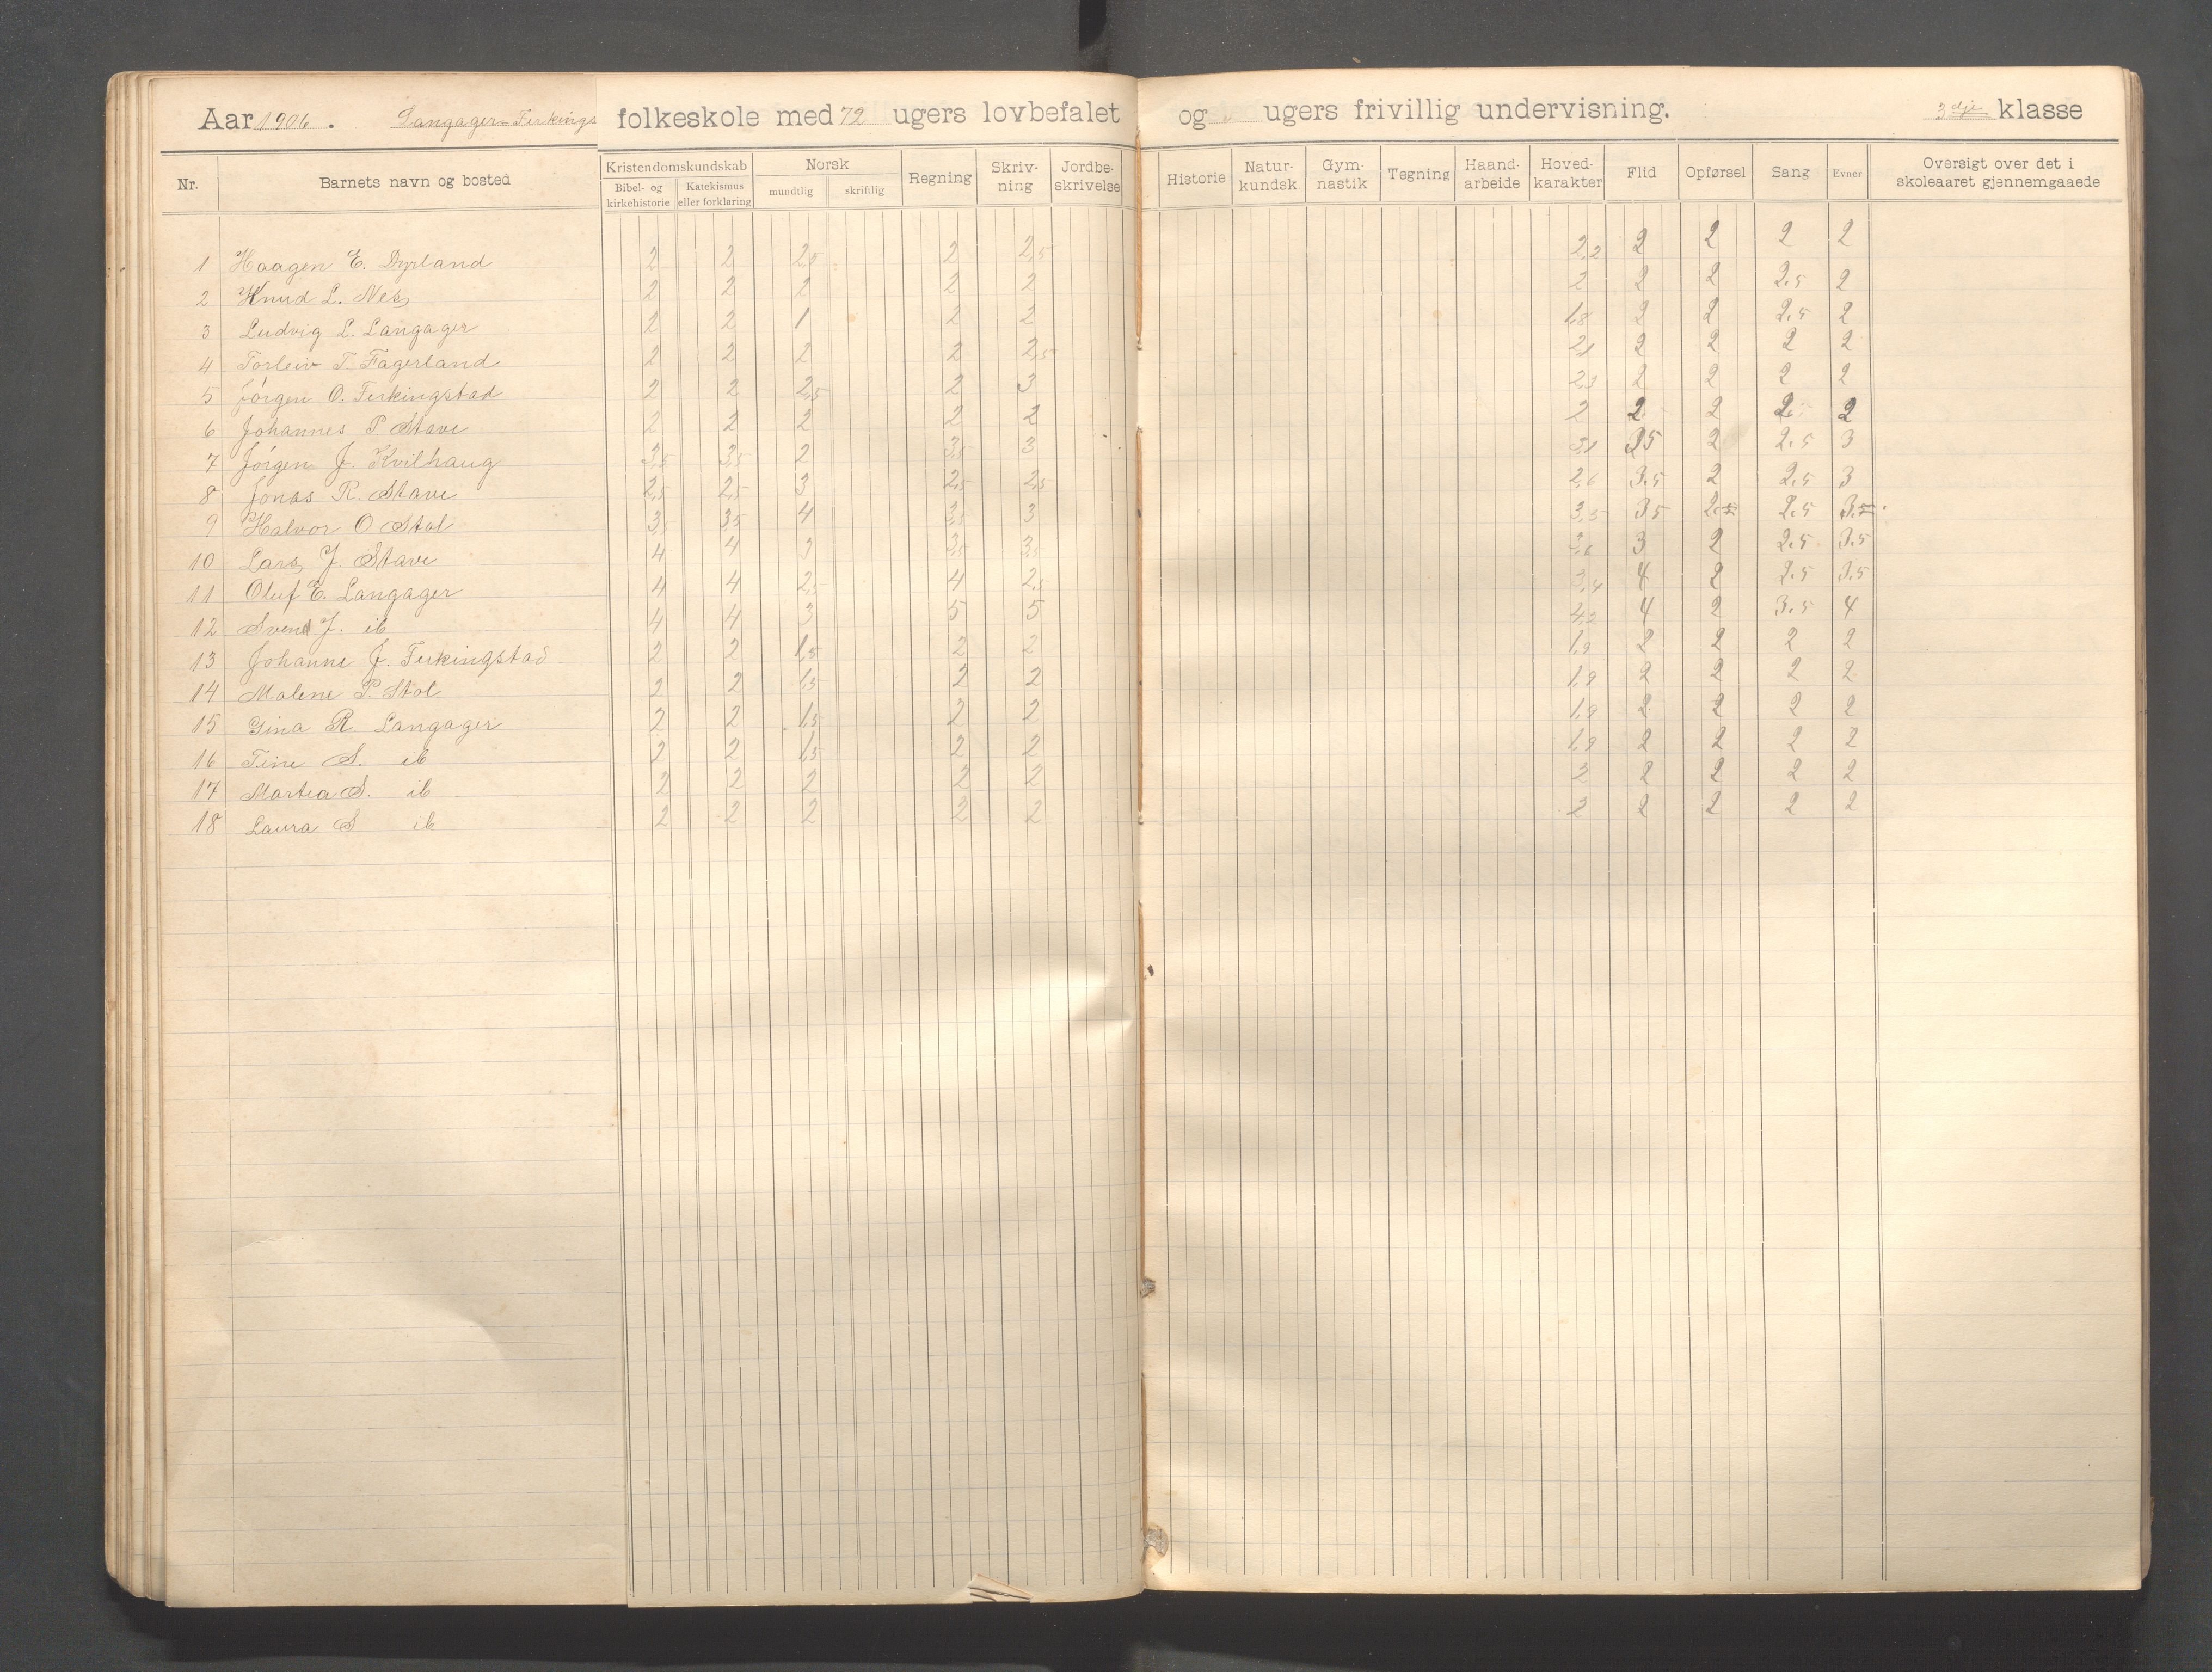 Aar 1906. Langager-Ferkings folkeskole med 72 ugers lovbefalet og ugers frivillig undervisning. 3dje klasse
Nr. Barnets navn og bosted Kristendomskundskab Bibel- og kirkehistorie Katekismus eller forklaring Norsk mundtlig skriftlig Regning Skriv-ning Jordbe-skrivelse Historie Natur-kundsk Gym-nastik Tegning Haand-arbeide Hoved-karakter Flid Opførsel Sang Evner Oversigt over det i skoleaaret gjennemgaaede
1 Haagen E. Dyrland 2 2 2,5 2 2,5 2,2 2 2 2 2
2 Knud L. Nes 2 2 2 2 2 2 2 2 2.5 2
3 Ludvig L. Langager 2 2 1 2 2 1,8 2 2 2.5 2
4 Torleiv T. Fagerland 2 2 2 2 2,5 2,1 2 2 2 2
5 Jörgen O. Ferkingstad 2 2 2,5 2 3 2,3 2 2 2 2
6 Johannes P Stave 2 2 2 2 2 2 2 2 2 2
7 Jörgen J. Kvilhaug 3,5 3,5 2 3,5 3 3,1 3.5 2 2.5 3
8 Jonas R. Stave 2,5 2,5 3 2,5 2,5 2,6 3.5 2 2.5 3
9 Halvor O Stol 3,5 3,5 4 3,5 3 3,5 3.5 2.5 2.5 3.5
10 Lars J. Stave 4 4 3 3,5 3,5 3,6 3 2 2.5 3.5
11 Oluf E. Langager 4 4 2,5 4 2,5 3,4 4 2 2.5 3.5
12 Svend J. ib 4 4 3 5 5 4,2 4 2 3.5 4
13 Johanne J. Ferkingstad 2 2 1,5 2 2 1,9 2 2 2 2
14 Malene P. Stol 2 2 1,5 2 2 1,9 2 2 2 2
15 Gina R. Langager 2 2 1,5 2 2 1,9 2 2 2 2
16 Tine S. ib 2 2 1,5 2 2 1,9 2 2 2 2
17 Martea S. ib 2 2 2 2 2 2 2 2 2 2
18 Laura S ib 2 2 2 2 2 2 2 2 2 2